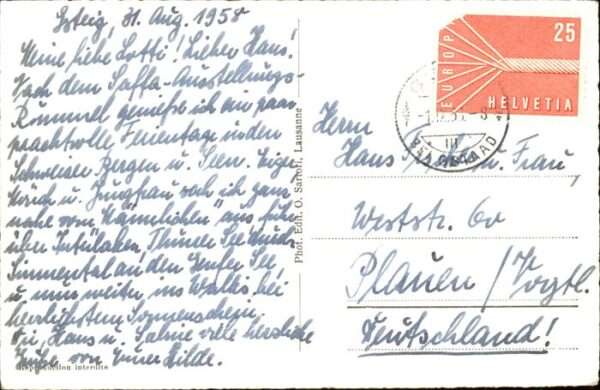 Gsteig, 31. Aug. 1958
Meine liebe Lotti! Lieber Hans!
Nach dem Saffa-Ausstellungs-
Rummel genieße ich ein paar
prachtvolle Ferientage in den
Schweizer Bergen u. Seen. Eiger
Mönch u. Jungfrau sah ich ganz
nahe vom "Männlichen" aus, fuhr
über Interlaken, Thuner See durch
Simmental an den Genfer See
u. nun weiter ins Wallis bei
herrlichstem Sonnenschein.
Dir, Hans u. Sabine viele herzliche
Grüße von Eurer Hilde.
Reproduction interdite
Phot. Edit. O. Sartori, Lausanne
EUROPA
25
HELVETIA
GSTAAD
Herrn
Hans u. Frau,
Weststr. 60
Plauen / Vogtl.
Deutschland!